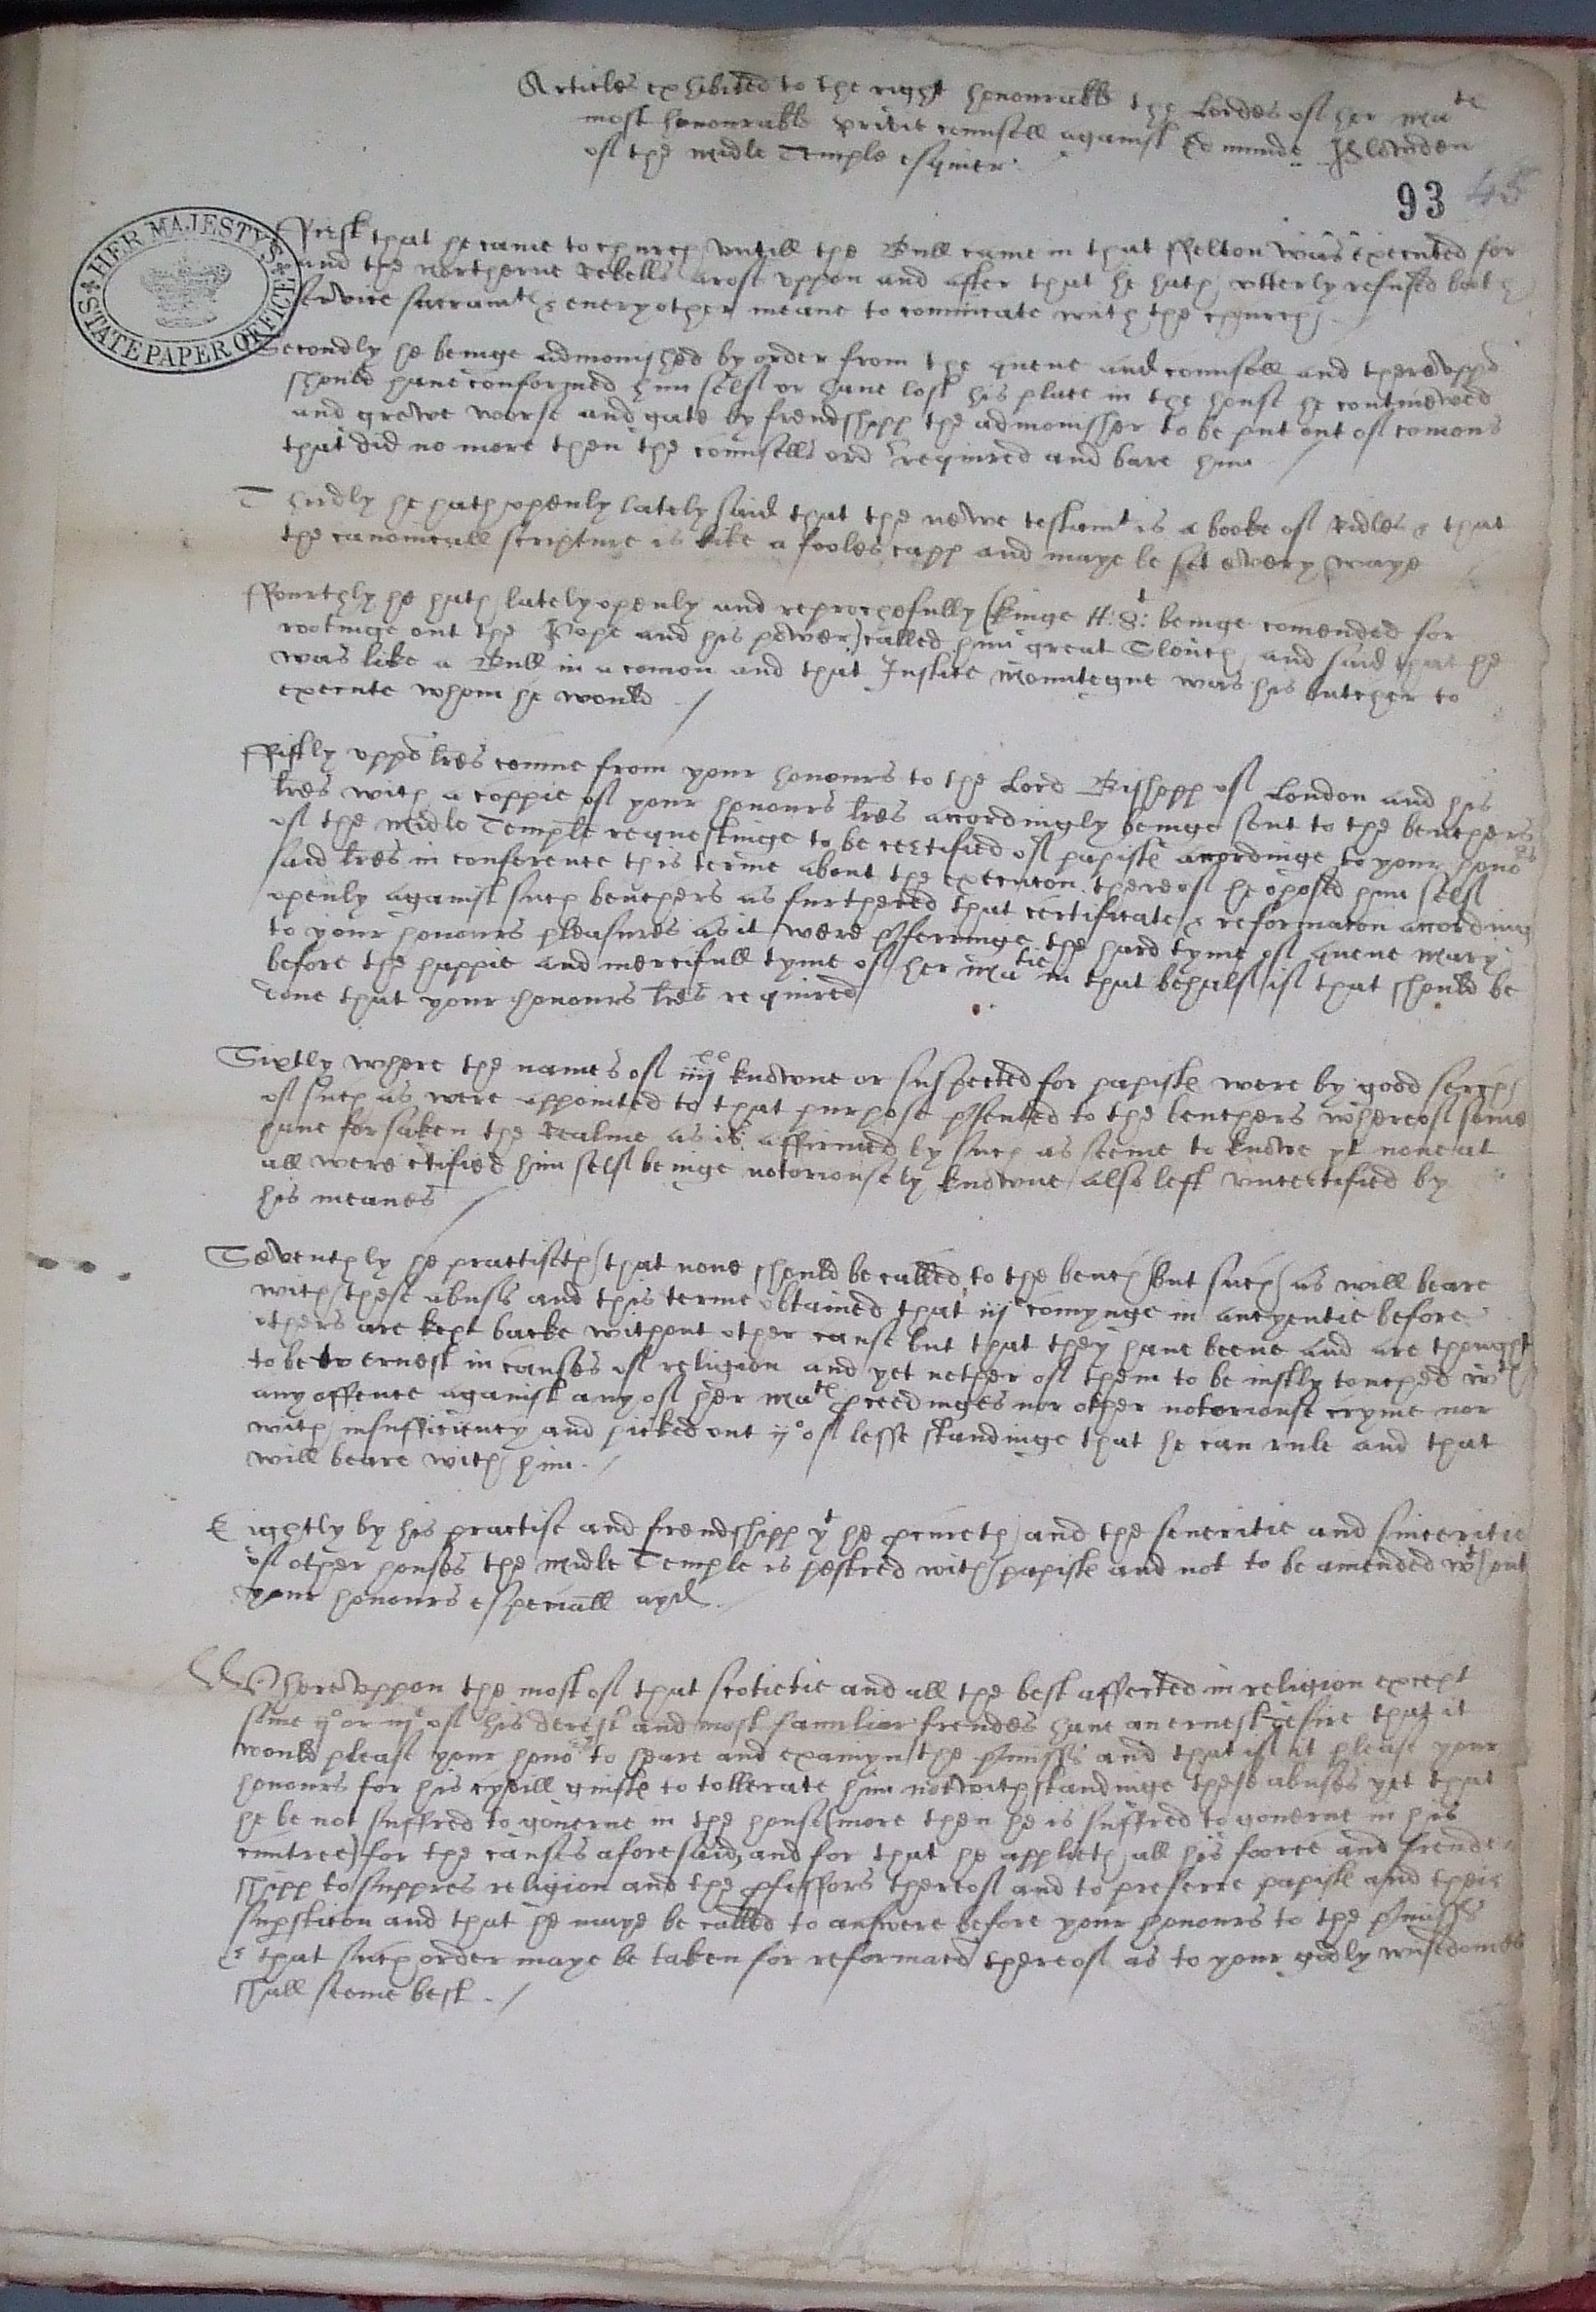 Articles exhibited to the right honourable the Lordes of her Matie
most honourable privie counsell against Edmunde Plowden
of the Midle Temple esquier.
93 45
HER MAJESTY'S STATE PAPER OFFICE
Ffirst that he came to church untill the Bull came in that Ffelton was executed for
and the northerne Rebells arose uppon and after that he hath utterly refused both
service sacramte & every other meane to comunicate with the church
Secondly he beinge admonished by order from the quene and counsell and thereuppō
should have conformed him self or have lost his place in the house he contineued
and grewe worse and gate by frendshipp the admonissher to be put out of comons
that did no more then the counsells ordr required and bare him /
Thirdly he hath openly lately said that the newe testamt is a booke of Ridles & that
the canonicall scripture is like a fooles capp and maye be set every waye
Ffourthly he hath lately openly and reprochefully (kinge H: 8t: beinge comended for
rootinge out the Pope and his power) called him great Slouch and said that he
was like a Bull in a comon and that Justice Mountegue was his butcher to
execute whom he would /
Ffiftly uppō lres comme from your honours to the Lord Bishopp of London and his
lres with a coppie of your honours lres accordingly beinge sent to the benchers
of the Midle Temple requestinge to be certified of papiste accordinge to your honors
said lres in conference this terme about the execution thereof he oposed him self
openly against such benchers as furthered that certificate & reformacon according
to your honours pleasures as it were pferringe the hard tyme of quene Mary
before the happie and mercifull tyme of her Matie in that behalf if that should be
done that your honours lres required
Sixtly where the names of iiijxx knowne or suspected for papiste were by good serch
of such as were appointed to that purpose psented to the benchers whereof some
have forsaken the Realme as is affirmed by such as seeme to knowe yt none at
all were ctified him self beinge notoriousely knowne also left uncertified by
his meanes /
Seventhly he practiseth that none should be called to the bench but such as will beare
with these abuses and this terme obtained that iije comynge in ancyentie before
others are kept backe without other cause but that they have beene and are thought
to be to ernest in causes of religion and yet nether of them to be iustly touched wth
any offence against any of her Mate pceedinges nor other notoriouse cryme nor
with insufficiency and picked out ijo of lesse standinge that he can rule and that
will beare with him. /
Eightly by his practise and frendshipp yt he pcureth and the severitie and sinceritie
of other houses the Midle Temple is pestred with papiste and not to be amended wthout
your honours especiall ayd. /
Whereuppon the most of that societie and all the best affected in religion except
some ijo or iije of his derest and most familier frendes have an ernest desire that it
would please your honors to heare and examyn the pmisses and that if it please your
honours for his cyvill guifte to tollerate him notwithstandinge these abuses yet that
he be not suffred to governe in the house (more then he is suffred to governe in his
cuntree) for the causes aforesaid, and for that he applieth all his foorce and frende
shipp to suppres religion and the pfessors thereof and to preferre papiste and their
supsticon and that he maye be called to answere before your honours to the pmisses
& that such order maye be taken for reformacō thereof as to your godly wisedomes
shall seeme best . /